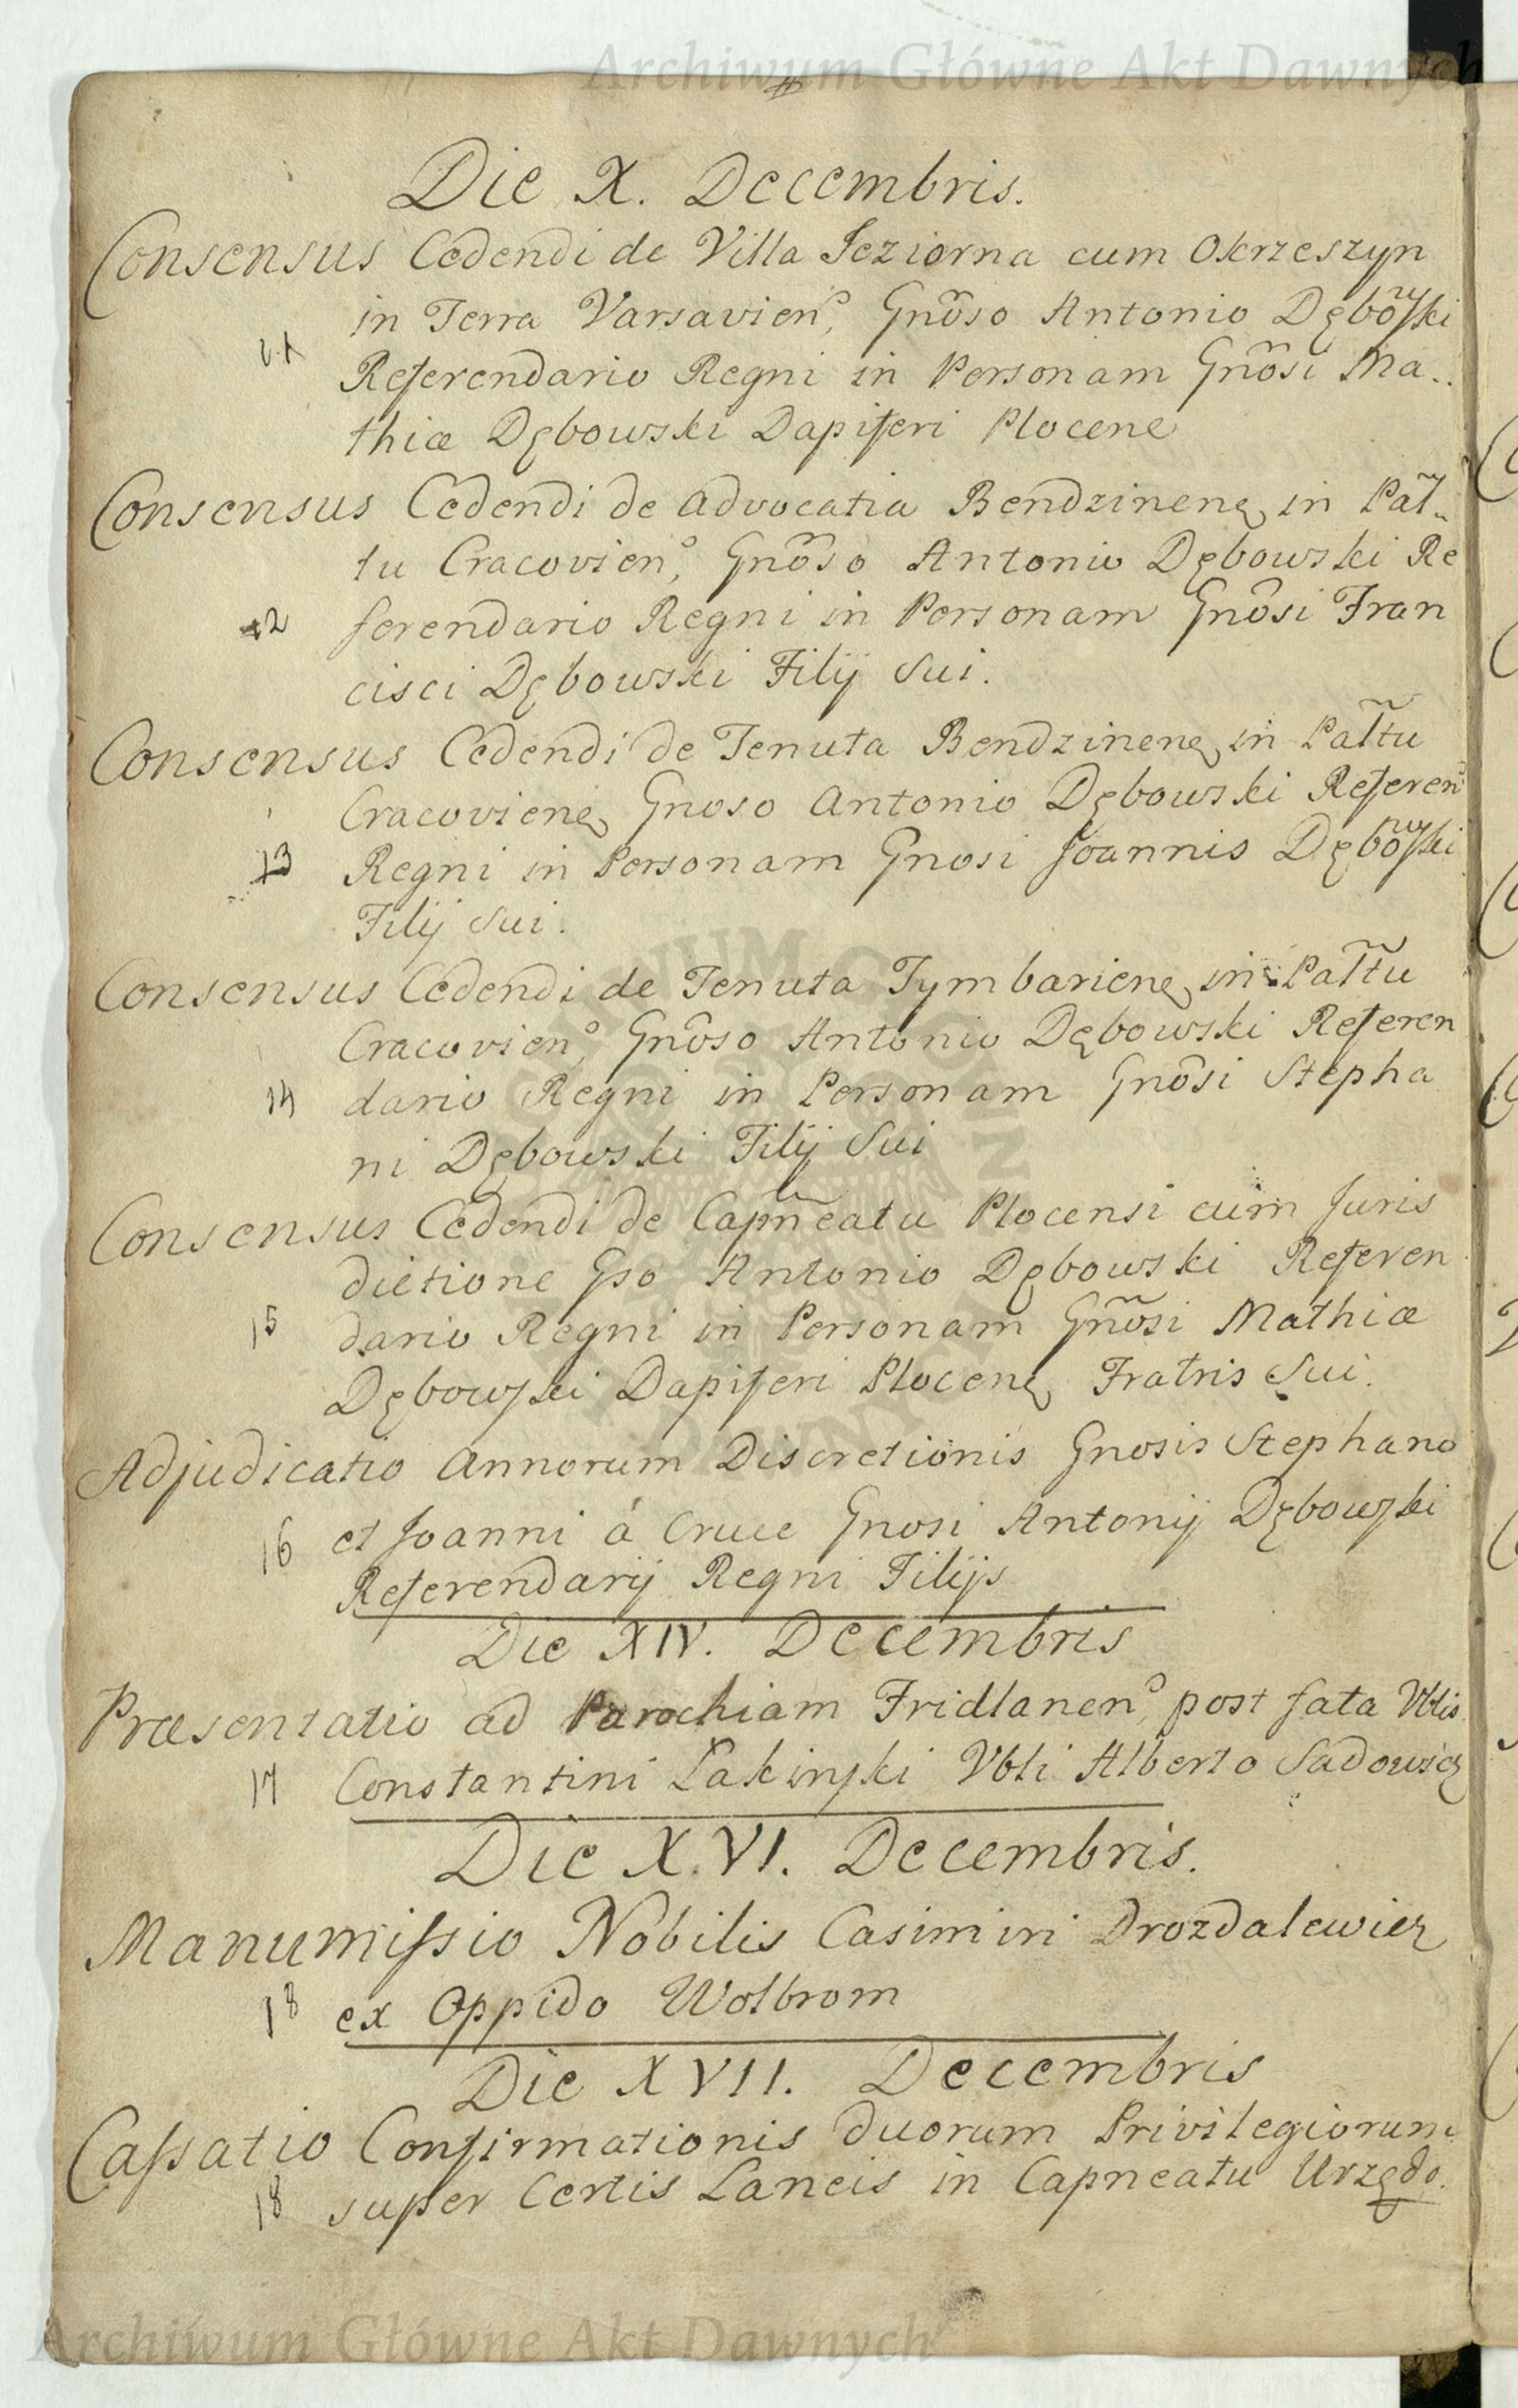 Archiwum Główne Akt Dawnych
Die X. Decembris.
Consensus Cedendi de Villa Jeziorna cum Okrzeszyn
in Terra Varsavien, Gnõso Antonio Dębo͠wski
11 Referendario Regni in Personam Gnõsi Ma..
thiæ Dębowski Dapiferi Plocenẹ
Consensus Cedendi de Advocatia Bendzinenẹ in Pal̃-
tu Cracovien, Gnõso Antonio Dębowski Re
12 ferendario Regni in Personam Gnõsi Fran
cisci Dębowski Filij Sui.
Consensus Cedendi de Tenuta Bendzinenẹ in Pal̃tu
Cracovienẹ Gnoso Antonio Dębowski Referen
13 Regni in Personam Gnosi Joannis Dębo͠wski
Filij Sui.
Consensus Cedendi de Tenuta Tymbarienẹ in Pal̃tu
Cracovien, Gnõso Antonio Dębowski Referen
14 dario Regni in Personam Gnõsi Stepha
ni Dębowski Filij Sui
Consensus Cedendi de Capñeatu Plocensi cum Juris
dictione Gso Antonio Dębowski Referen
15 dario Regni in Personam Gnõsi Mathiæ
Dębowski Dapiferi Plocenẹ Fratris Sui.
Adjudicatio Annorum Discretionis Gnosis Stephano
16 et Joanni á Cruce Gnosi Antonij Dębowski
Referendarij Regni Filijs
Die XIV. Decembris
Præsentatio ad Parochiam Fridlanen, post fata Vblis
17 Constantini Lakinski Vbli Alberto Sadowicz
Die X.VI. Decembris.
Manumissio Nobilis Casimiri Drozdalewicz
18 ex Oppido Wolbrom
Die XVII. Decembris
Cassatio Confirmationis duorum Privilegiorum
18 super Certis Laneis in Capneatu Urzędo.
Archiwum Główne Akt Dawnych